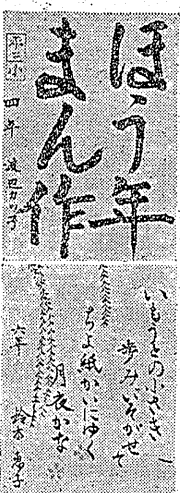 ほう年
まん作
四年
いもうとの小さき
歩みいそがせて
ちよ紙かいにゆく
月夜かな
六年 鈴木